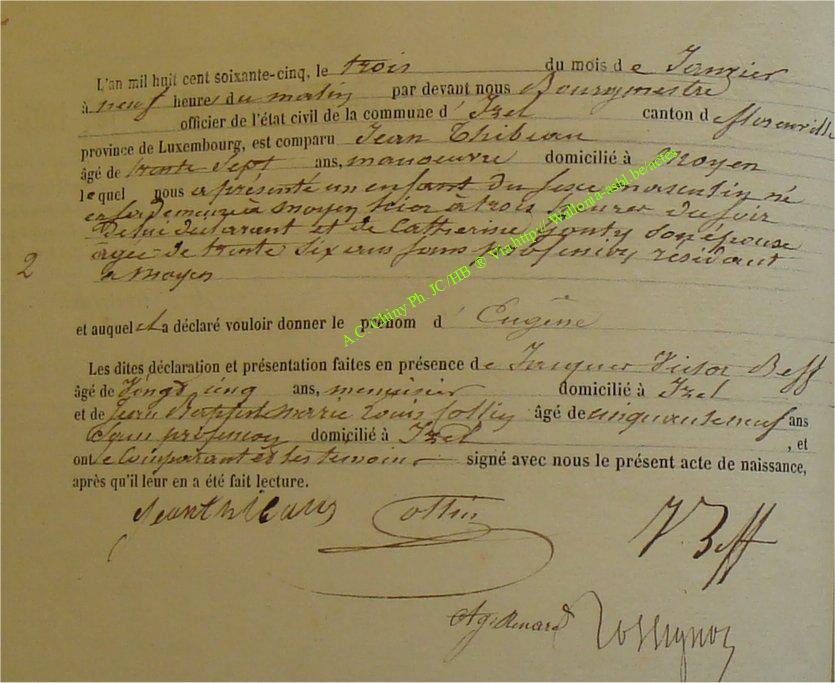 L'an mil huit cent soixante-cinq, le trois du mois de Janvier
à neuf heures du matin par devant nous Bourgmestre
officier de l'état civil de la commune d' Izel canton d
province de Luxembourg, est comparu Jean Thibeau
âgé de trente Sept ans, manoeuvre domicilié à Moyen
lequel nous a présenté un enfant du sexe masculin né
en sa demeure à moyen hier à trois heures du soir
de lui déclarant et de Catherine Gonty son épouse
agée de trente six ans sans profession résidant
2
a Moyen
et auquel il a déclaré vouloir donner le prénom d' Eugène
Les dites déclaration et présentation faites en présence de Jacques Victor Beff
âgé de Vingt cinq ans, menuisier domicilié à Izel
et de Jean Baptiste marie Louis Collin âgé de cinquante neuf ans
Sans profession domicilié à Izel , et
ont le Comparant et les temoins signé avec nous le présent acte de naissance,
après qu'il leur en a été fait lecture.
Collin
V. Beff
Rossignon
A.C. Chiny Ph. JC /HB ® Via http://Wallonia-asbl.be/actes